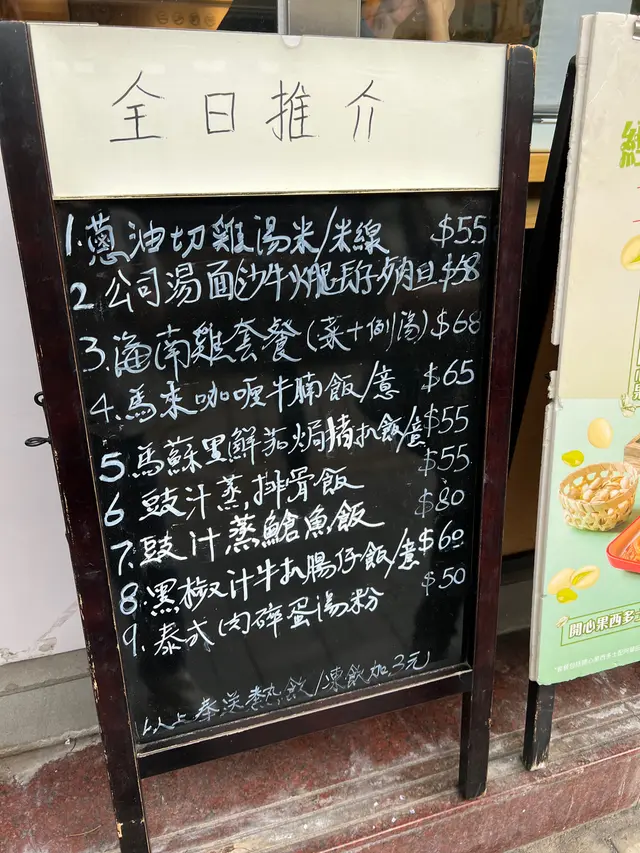 全日推介
1.蔥油切雞湯米/米線 $55
2 公司湯面(沙牛火腿瓜仔 $58
3.海南雞套餐(菜+例湯)$68
4.馬來咖喱牛腩飯/意 $65
5 馬蘇里鮮茄焗猪扒飯/意 $55
6 豉汁蒸排骨飯 $55
7.豉汁蒸鯧魚飯 $80
8.黑椒汁牛扒腸仔飯/意 $60
9.泰式肉碎蛋湯粉 $50
以上奉送熱飲/凍飲加3元
開心果西多